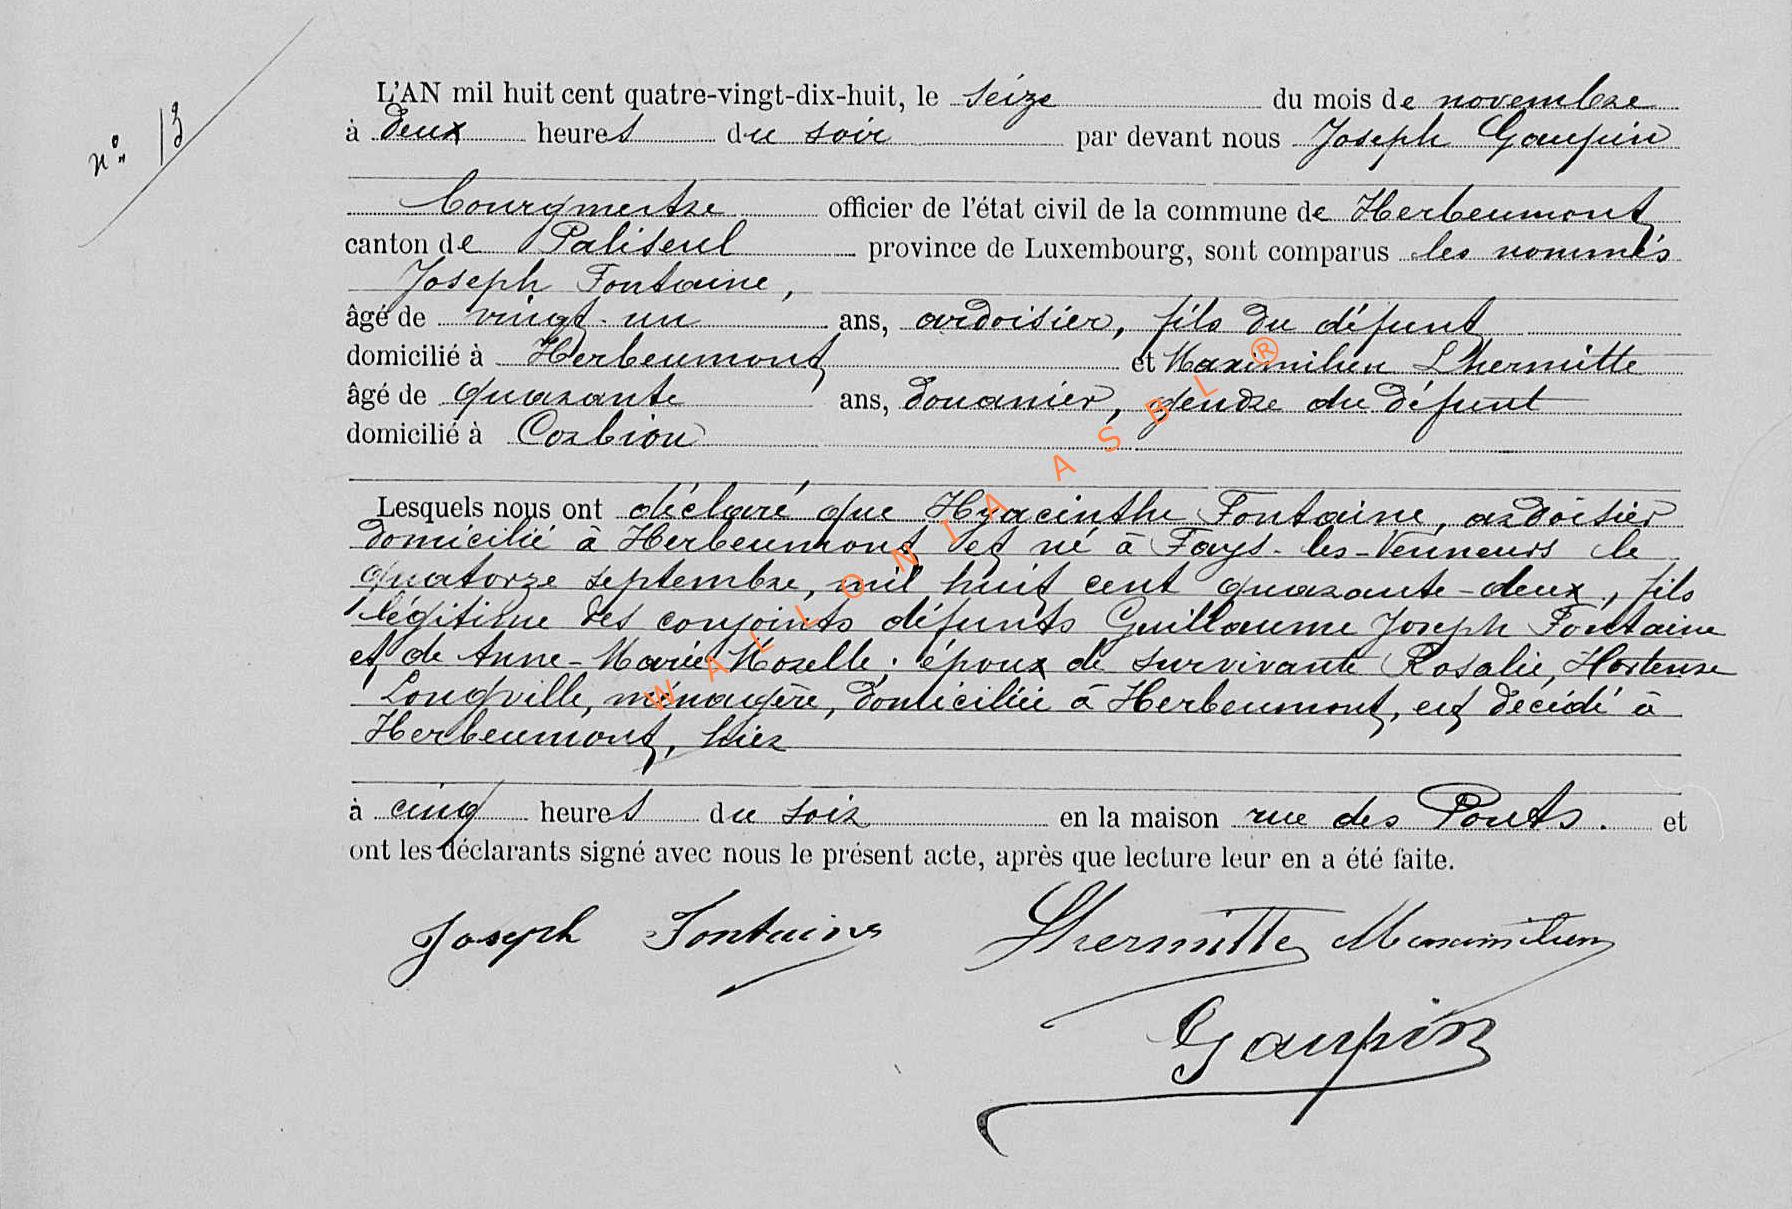 n° 13
L'AN mil huit cent quatre-vingt-dix-huit, le seize du mois de novembre
à deux heures du soir par devant nous Joseph Gaupin
bourgmestre officier de l'état civil de la commune de Herbeumont
canton de Paliseul province de Luxembourg, sont comparus les nommés
Joseph Fontaine,
âgé de vingt-un ans, ardoisier, fils du défunt
domicilié à Herbeumont et Maximilien Lhermitte
âgé de quarante ans, douanier, gendre du défunt
domicilié à Corbion
Lesquels nous ont déclaré que Hyacinthe Fontaine, ardoisier
domicilié à Herbeumont et né à Fays-les-Veneurs le
quatorze septembre, mil huit cent quarante-deux, fils
légitime des conjoints défunts Guillaume Joseph Fontaine
et de Anne-Marie Mozelle; époux de survivante Rosalie, Hortense
Longville, ménagère, domiciliée à Herbeumont, est décédé à
Herbeumont, hier
à cinq heures du soir en la maison rue des Ponts. et
ont les déclarants signé avec nous le présent acte, après que lecture leur en a été faite.
Joseph Fontaine Lhermitte Maximilien
Gaupin
WALLONIA ASBL ®